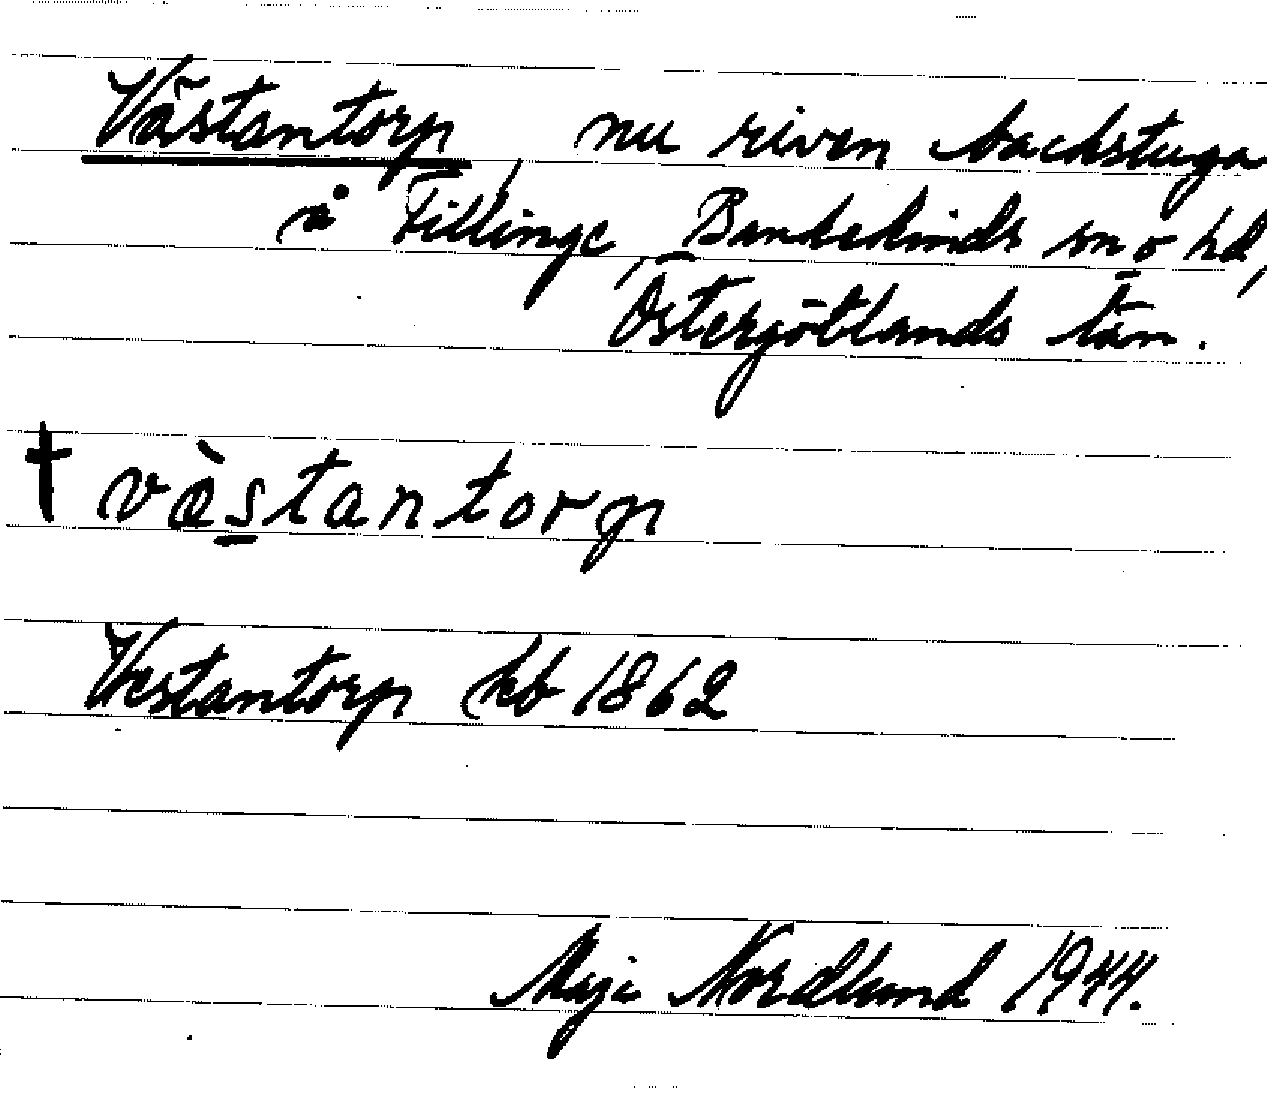 Västantorp, nu riven backstuga
å Fillinge, Bankekinds sn o hd,
Östergötlands län.
† vàstantorp
Westantorp kb 1862
Maja Nordlund 1944.